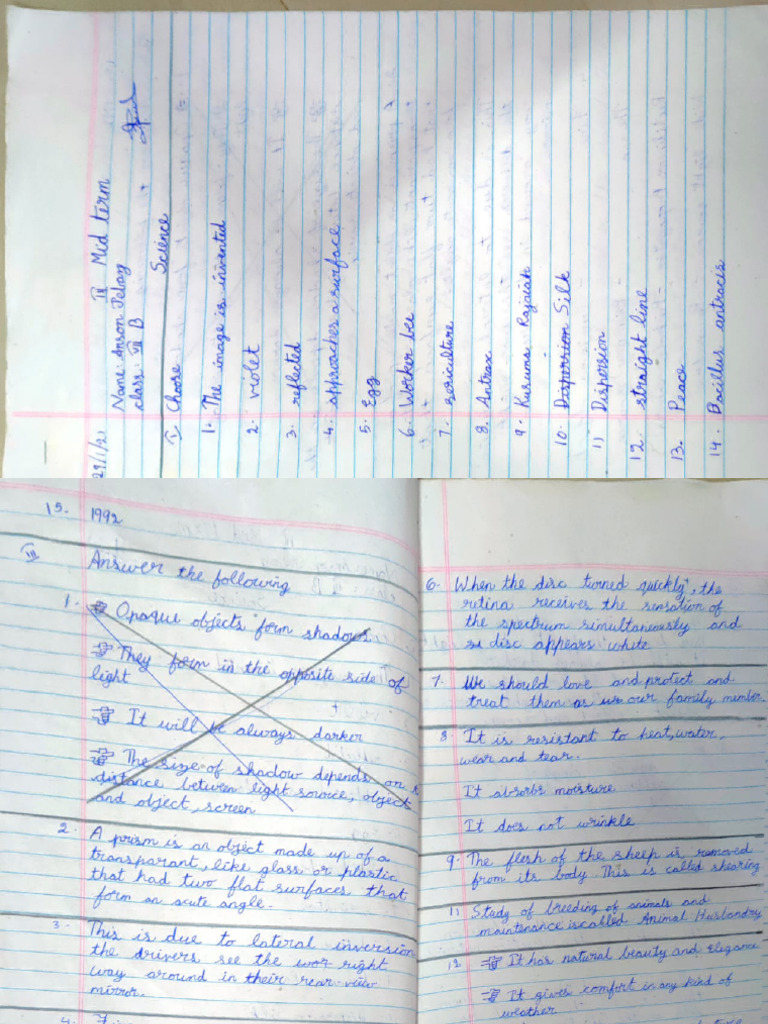 29/1/21
III Mid term
Name: Anson Jebaz
class: VII B
Science
I Choose
1. The image is inverted
2. violet
3. reflected
4. approaches a surface
5. Egg
6. Worker bee
7. sericulture
8. Antrax
9. Kusuma Rajaiah
10. Dispersion Silk
11 Dispersion
12. straight line
13. Peace
14. Bacillus antracis
15. 1992
III Answer the following
1. Opaque objects form shadows
They form in the opposite side of
light
It will be always darker
The size of shadow depends on
distance between light source, object
and object, screen
2. A prism is an object made up of a
transparant, like glass or plastic
that had two flat surfaces that
form an acute angle.
3. This is due to lateral inversion
the drivers see the wor right
way around in their rear view
mirror.
4.
6. When the disc turned quickly, the
retina receives the sensation of
the spectrum simultaneously and
disc appears white
7. We should love and protect and
treat them as our family member.
8. It is resistant to heat, water,
wear and tear.
It absorbs moisture
It does not wrinkle
9. The flesh of the sheep is removed
from its body. This is called shearing
11 Study of breeding of animals and
maintenance is called Animal Husbandry
12 It has natural beauty and Elegance
It gives comfort in any kind of
weather